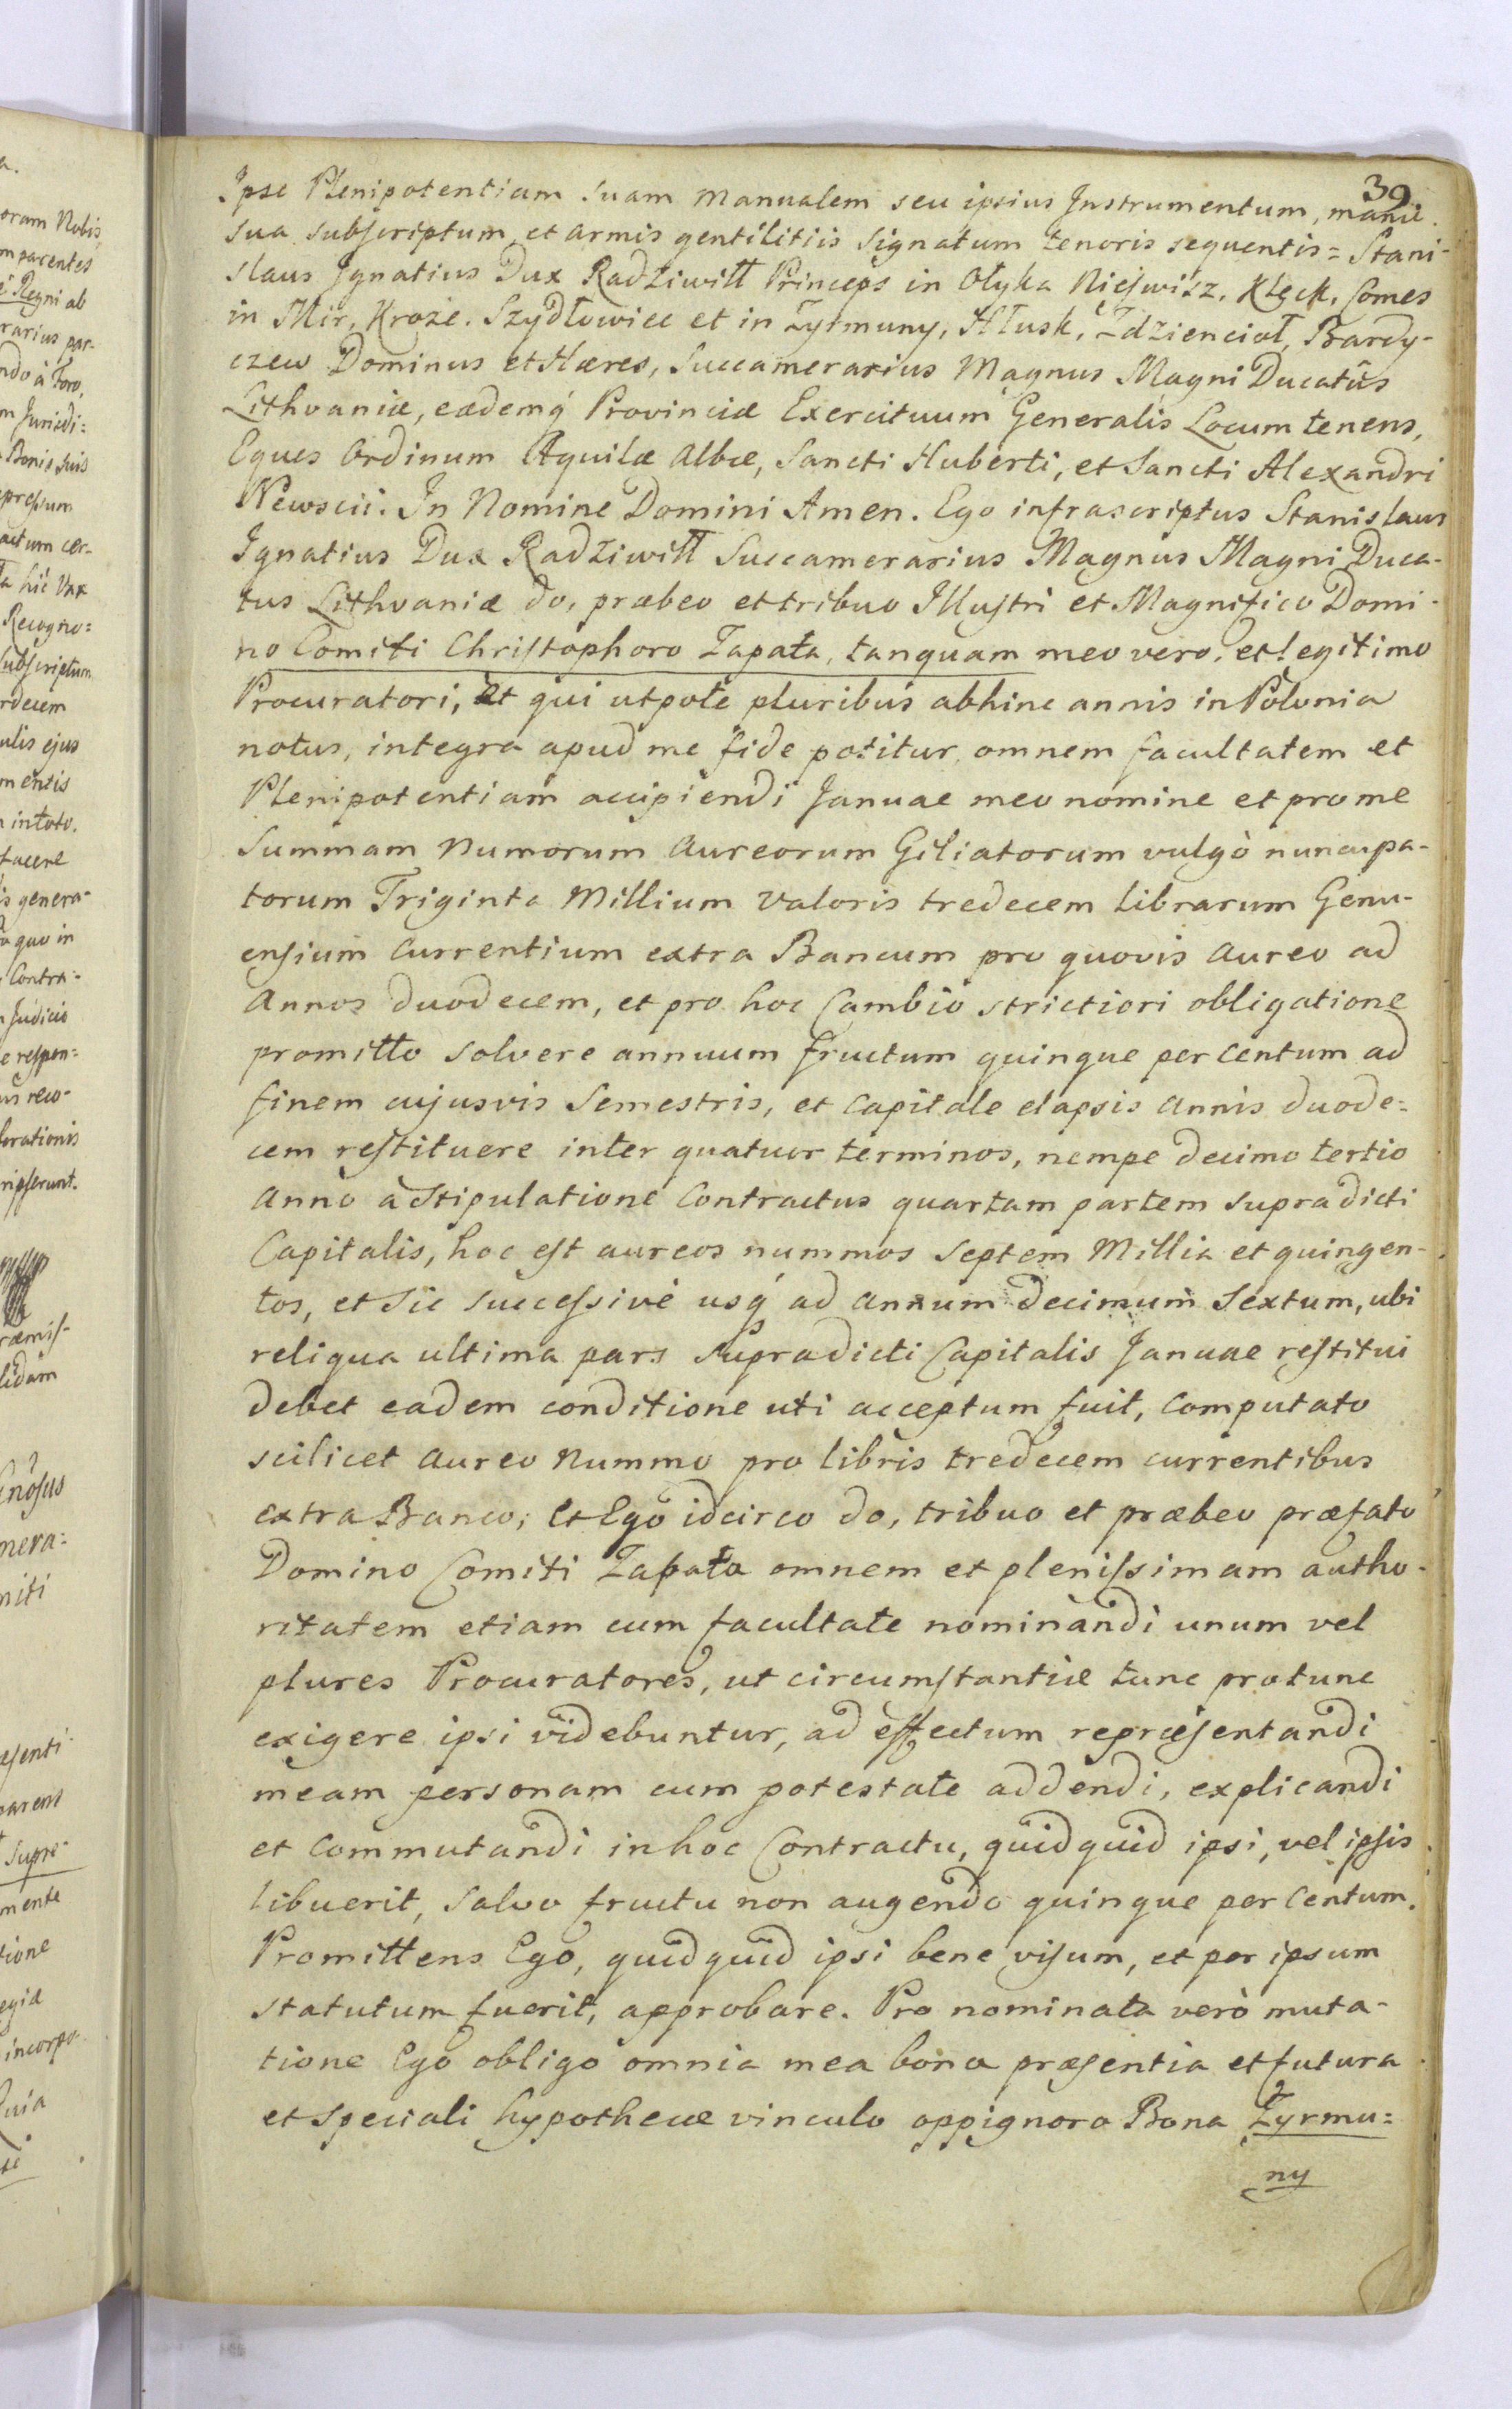 39
Ipse Plenipotentiam suam manualem seu ipsius Instrumentum, manu
sua subscriptum et armis gentilitiis signatum tenoris sequentis = Stani-
slaus Ignatius Dux Radziwiłł Princeps in Ołyka Nieświsz, Klęck, Comes
in Mir, Kroże, Szydłowiec et in Żyrmuny, Hłusk, Zdziencioł, Bardy-
czew Dominus et Hæres, Succamerarius Magnus Magni Ducatûs
Lithvaniæ, eædemq́ Provinciæ Exercituum Generalis Locum tenens,
Eques Ordinum Aquilæ Albæ, Sancti Huberti, et Sancti Alexandri
Newscii. In Nomine Domini Amen. Ego infrascriptus Stanislaus
Ignatius Dux Radziwiłł Succamerarius Magnus Magni Duca-
tus Lithvaniæ do, præbeo et tribuo Illustri et Magnifico Domi-
no Comiti Christophoro Zapata, tanquam meo vero, et legitimo
Procuratori, Et qui utpote pluribus abhinc annis in Polonia
notus, integra apud me fide potitur, omnem facultatem et
Plenipotentiam accipiendi Januae meo nomine et pro me
Summam Numorum Aureorum Giliatorum vulgò nuncupa-
torum Triginta Millium Valoris tredecem librarum Genu-
ensium Currentium extra Bancum pro quovis Aureo ad
Annos duodecem, et pro hoc Cambio strictiori obligatione
promitto solvere annuum fructum quinque per centum ad
finem cujusvis Semestris, et Capitale elapsis Annis duode=
cem restituere inter quatuor terminos, nempe decimo tertio
Anno à Stipulatione Contractus quartam partem supradicti
Capitalis, hoc est aureos nummos Septem Millia et quingen-
tos, et sic successivè usq́ ad annum decimum Sextum, ubi
reliqua ultima pars supradicti Capitalis Januae restitui
debet eadem conditione uti acceptum fuit, Computato
scilicet Aureo Nummo pro libris tredecem currentibus
extra Banco; Et Ego idcirco do, tribuo et præbeo præfato
Domino Comiti Zapata omnem et plenissimam autho-
ritatem etiam cum facultate nominandi unum vel
plures Procuratores, ut circumstantiæ tunc pro tunc
exigere ipsi videbuntur, ad effectum repræsentandi
meam personam cum potestate addendi, explicandi
et Commutandi in hoc Contractu, quidquid ipsi, vel ipsis
libuerit, Salvo fructu non augendo quinque per Centum.
Promittens Ego, quidquid ipsi bene visum, et per ipsum
statutum fuerit, approbare. Pro nominata verò muta-
tione Ego obligo omnia mea bona præsentia et futura
et Speciali hypothecæ vinculo oppignoro Bona Żyrmu=
ny